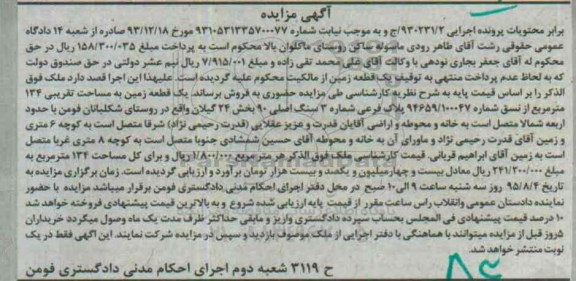 آگهی مزایده
برابر محتویات پرونده اجرایی ۹۳۰۲۳۱/۲/ج و به موجب نیابت شماره ۹۳۱۰۵۳۱۳۳۵۷۰۰۰۷۷ مورخ ۹۳/۱۲/۱۸ صادره از شعبه ۱۴ دادگاه
عمومی حقوقی رشت آقای طاهر رودی ماسوله ساکن روستای ماکلوان بالا محکوم است به پرداخت مبلغ ۱۵۸/۳۰۰/۰۳۵ ریال در حق
محکوم له آقای جعفر بجاری نودهی با وکالت آقای علی محمد تقی زاده و مبلغ ۷/۹۱۵/۰۰۱ ریال نیم عشر دولتی در حق صندوق دولت
که به لحاظ عدم پرداخت منتهی به توقیف یک قطعه زمین از مالکیت محکوم علیه گردیده است. علیهذا این اجرا قصد دارد ملک فوق
الذکر را بر اساس قیمت پایه به شرح نظریه کارشناسی طی مزایده حضوری به فروش برساند. یک قطعه زمین به مساحت تقریبی ۱۳۴
مترمربع از نسق شماره ۹۴۶۵۹/۱۰۰۰۴۷ پلاک فرعی شماره ۳ سنگ اصلی ۹۰ بخش ۲۴ گیلان واقع در روستای شکلبانان فومن با حدود
اربعه شمالا متصل است به خانه و محوطه و اراضی آقایان قدرت و عزیز عقلایی (قدرت رحیمی نژاد) شرقا متصل است به کوچه ۶ متری
و زمین آقای قدرت رحیمی نژاد و ماورای آن به خانه و محوطه آقای حسین شمشادی جنوبا متصل است به کوچه ۸ متری غربا متصل
است به زمین آقای ابراهیم قربانی. قیمت کارشناسی ملک فوق الذکر هر مترمربع ۱/۸۰۰/۰۰۰ ریال و برای کل مساحت ۱۳۴ مترمربع به
مبلغ ۲۴۱/۲۰۰/۰۰۰ ریال معادل بیست و چهارمیلیون و یکصد و بیست هزار تومان برآورد و ارزیابی گردیده است. زمان برگزاری مزایده به
تاریخ ۹۵/۸/۴ روز سه شنبه ساعت ۹ الی ۱۰ صبح در محل دفتر اجرای احکام مدنی دادگستری فومن برقرار میباشد مزایده با حضور
نماینده دادستان عمومی وانقلاب راس ساعت مقرر از قیمت پایه ارزیابی شده شروع و به بالاترین قیمت پیشنهادی فروخته خواهد شد
۱۰ درصد قیمت پیشنهادی فی المجلس بحساب سپرده دادگستری واریز و مابقی حداکثر ظرف مدت یک ماه وصول میگردد خریداران
۵روز قبل از مزایده میتوانند با هماهنگی با دفتر اجرایی از ملک موصوف بازدید و سپس در مزایده شرکت نمایند. این اگهی فقط در یک
نوبت منتشر خواهد شد.
ح ۳۱۱۹ شعبه دوم اجرای احکام مدنی دادگستری فومن